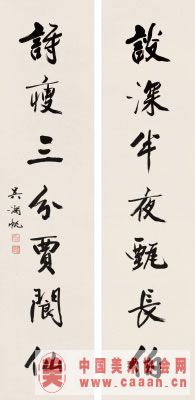 設深半夜甄長伯
詩瘦三分賈閬仙
吳湖帆
中国美术家网
www.caaan.cn